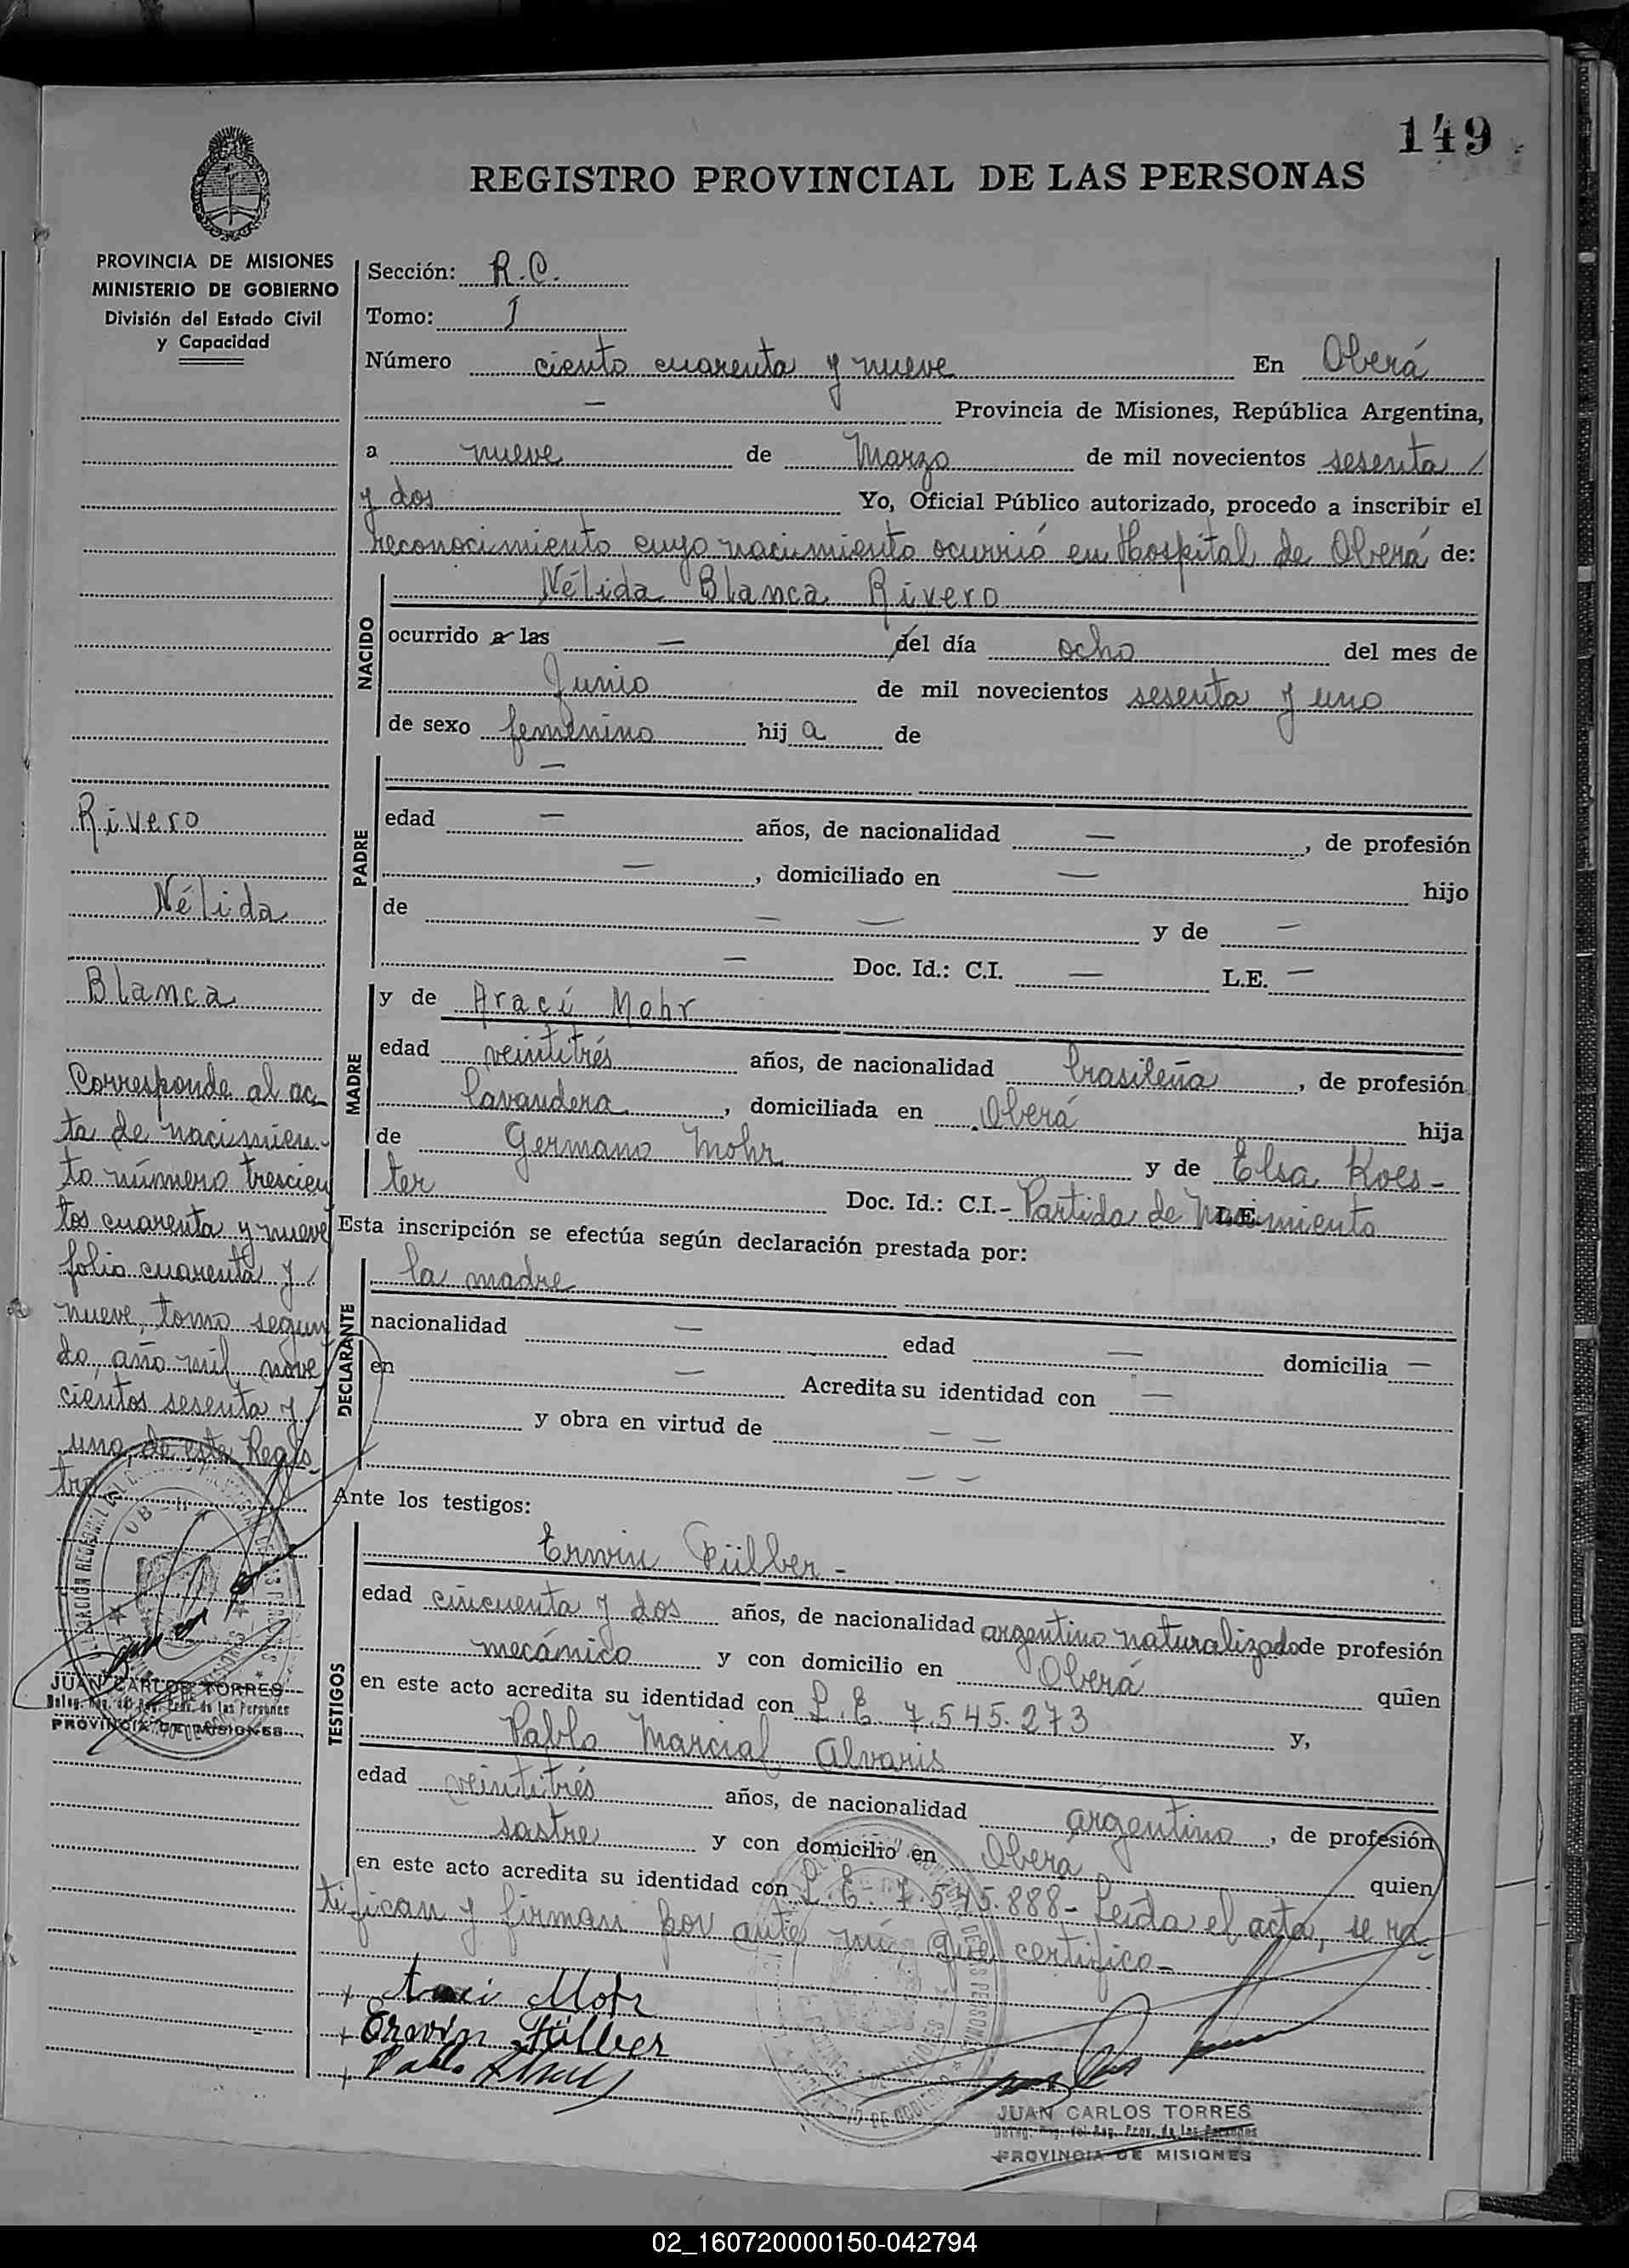 149
REGISTRO PROVINCIAL DE LAS PERSONAS
PROVINCIA DE MISIONES
MINISTERIO DE GOBIERNO
División del Estado Civil
y Capacidad
Rivero
Nélida
Blanca
Corresponde al ac-
ta de nacimien-
to número trescien
tos cuarenta y nueve
folio cuarenta y /
nueve, tomo segun
do, año mil nove
cientos sesenta y
uno, de este Regis-
tro
JUAN CARLOS TORRES
PROVINCIA DE MISIONES
Sección: R.C.
Tomo: I
Número ciento cuarenta y nueve En Oberá
— Provincia de Misiones, República Argentina,
a nueve de Marzo de mil novecientos sesenta /
y dos Yo, Oficial Público autorizado, procedo a inscribir el
reconocimiento cuyo nacimiento ocurrió en Hospital de Oberá de:
NACIDO
Nélida Blanca Rivero
ocurrido a las — del día ocho del mes de
Junio de mil novecientos sesenta y uno
de sexo femenino hij a de
PADRE
—
edad — años, de nacionalidad —, de profesión
—, domiciliado en — hijo
de — — y de —
— Doc. Id.: C.I. — L.E. —
MADRE
y de Araci Mohr
edad veintitrés años, de nacionalidad brasileña, de profesión
lavandera, domiciliada en Oberá hija
de Germano Mohr y de Elsa Koes-
ter Doc. Id.: C.I.- Partida de Nacimiento L.E.
Esta inscripción se efectúa según declaración prestada por:
DECLARANTE
la madre
nacionalidad — edad — domicilia —
en — Acredita su identidad con —
y obra en virtud de — —
— —
Ante los testigos:
TESTIGOS
Erwin Fülber -
edad cincuenta y dos años, de nacionalidad argentino naturalizado de profesión
mecánico y con domicilio en Oberá quien
en este acto acredita su identidad con L.E. 7.545.273 y,
Pablo Marcial Alvaris
edad veintitrés años, de nacionalidad argentino, de profesión
sastre y con domicilio en Oberá quien
en este acto acredita su identidad con L.E. 7.545.888- Leída el acta, se ra-
tifican y firman por ante mí que certifico-
+ Araci Mohr
+ Erwin Fülber
+ Pablo
JUAN CARLOS TORRES
PROVINCIA DE MISIONES
02_160720000150-042794